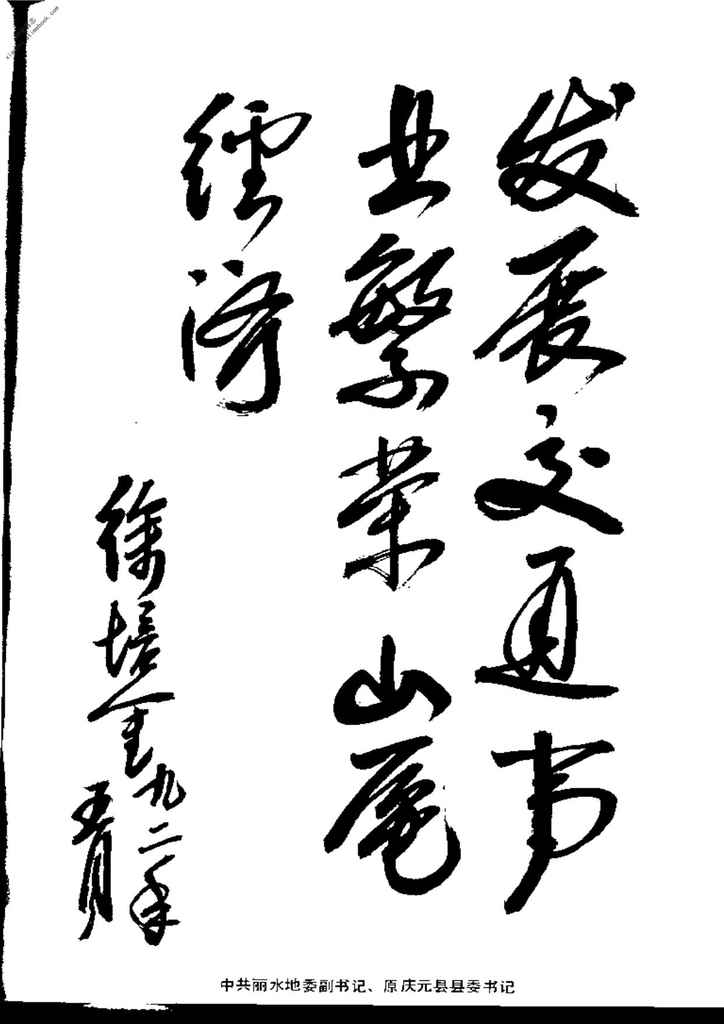 发展交通事
业繁荣山区
经济
徐培金
九二年
五月
中共丽水地委副书记、原庆元县县委书记